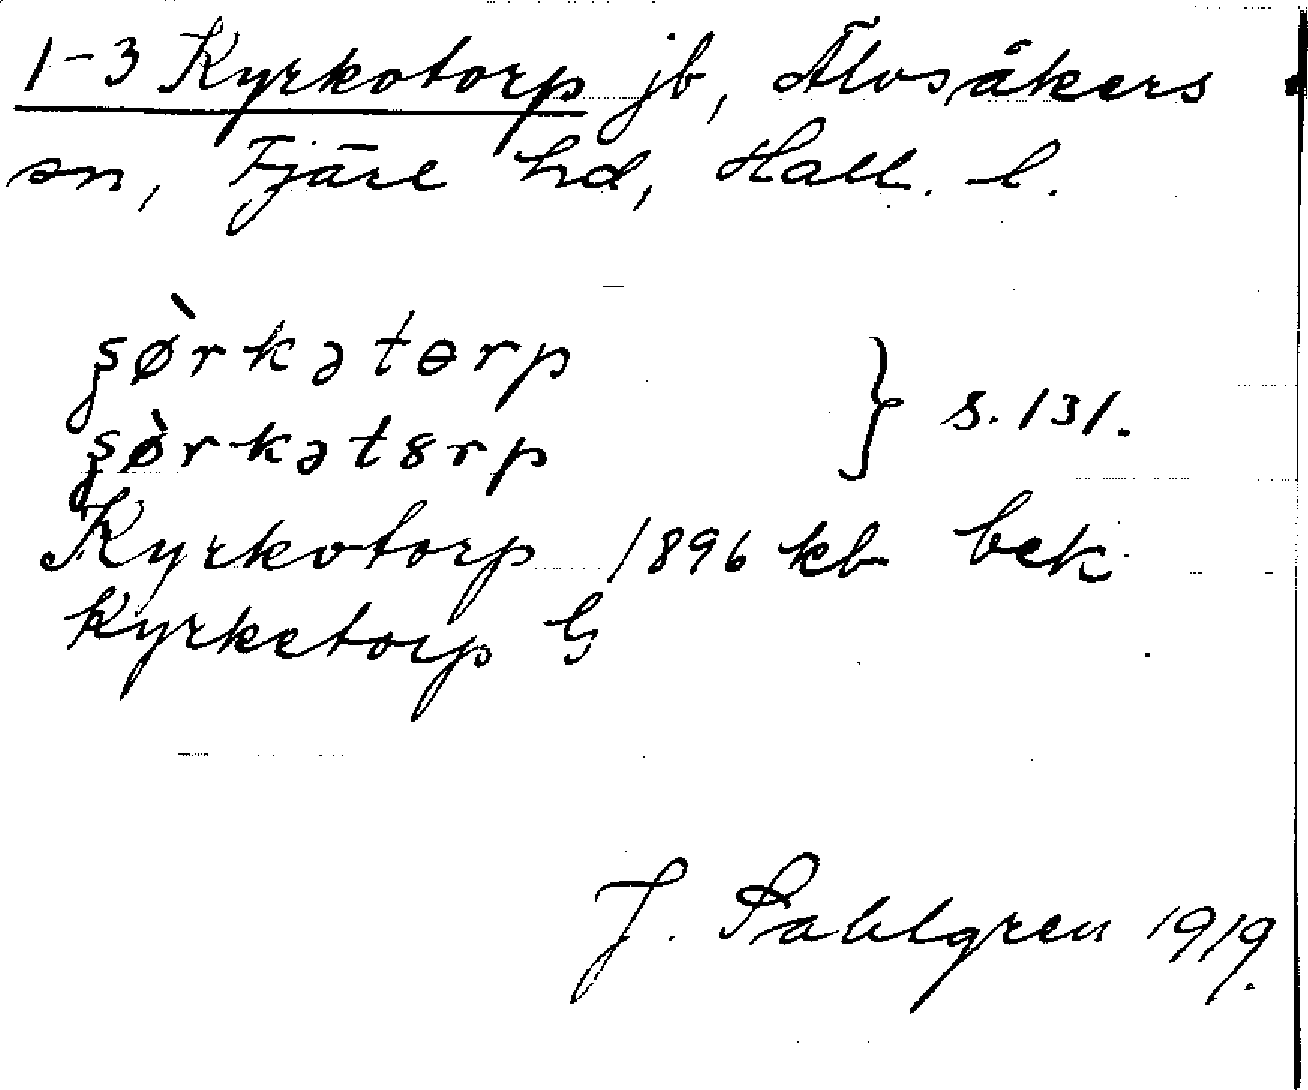 1-3 Kyrkotorp jb, Älvsåkers
sn, Fjäre hd, Hall. l.
ʂø̀rkətɵrp
ʂø̀rkət8rp } s. 131.
Kyrkotorp 1896 kb bek
Kyrketorp G
J. Sahlgren 1919.